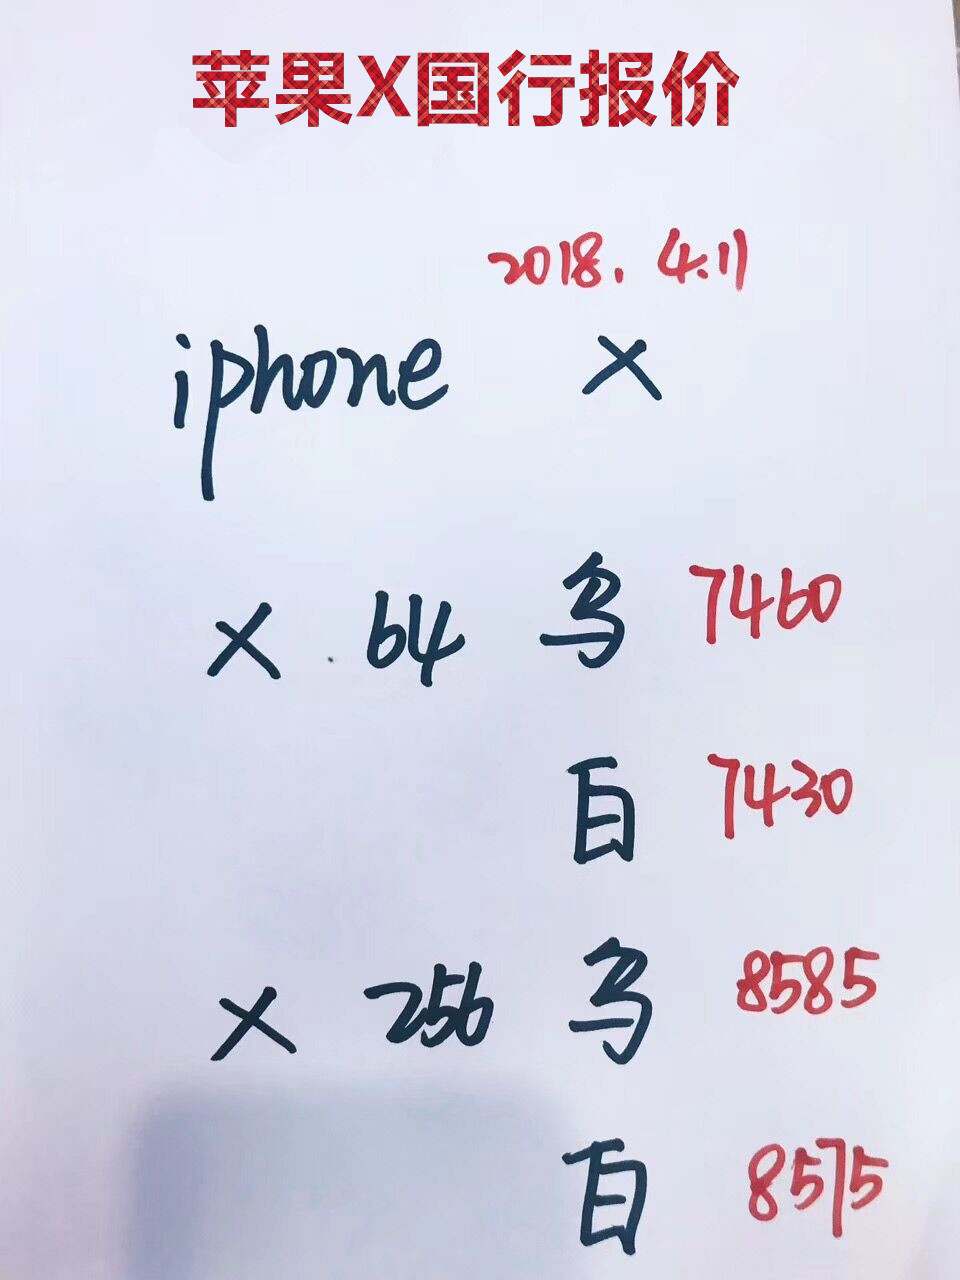 苹果X国行报价
2018.4.11
iphone X
X 64 乌 7460
白 7430
X 256 乌 8585
白 8575